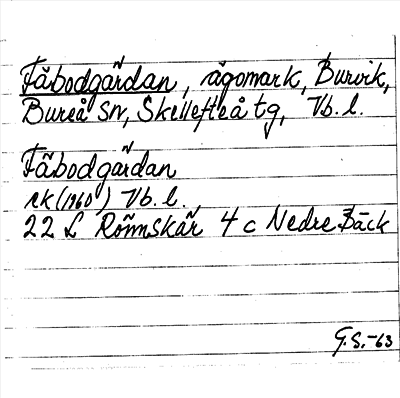 Fäbodgärdan, ägomark, Burvik,
Bureå sn, Skellefteå tg, Vb. l.
Fäbodgärdan
rk (1960) Vb. l.
22 L Rönnskär 4 c Nedre Bäck
G.S.-63